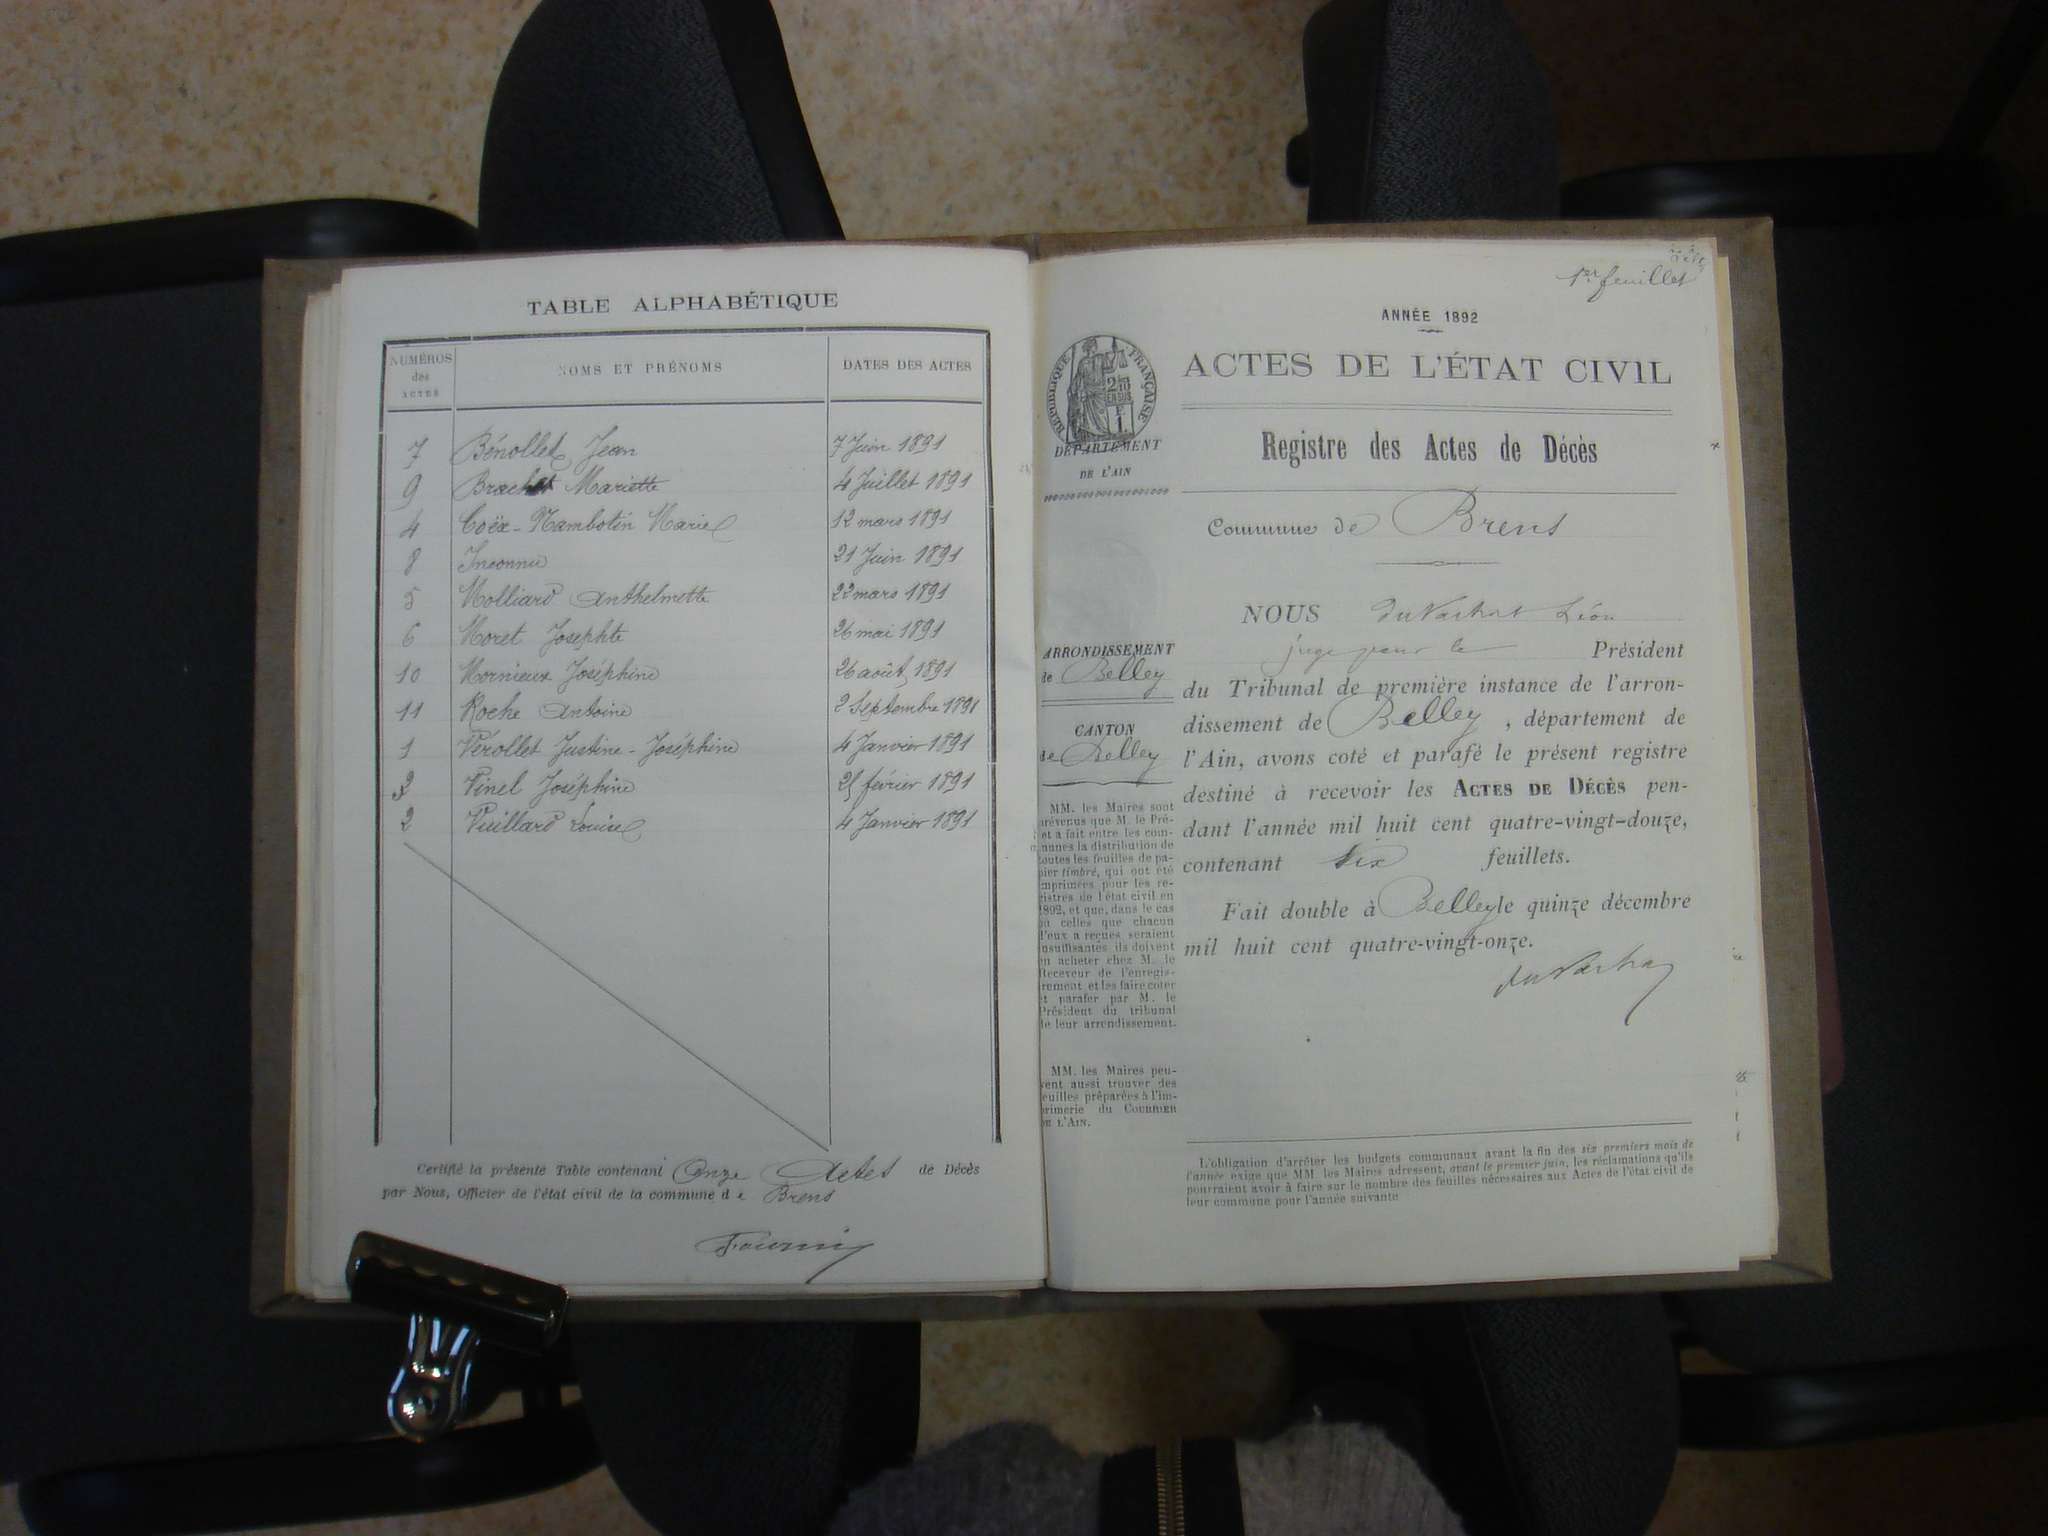 TABLE ALPHABÉTIQUE
NUMÉROS des ACTES
NOMS ET PRÉNOMS
DATES DES ACTES
7 Bénollet Jean 7 Juin 1891
9 Brachet Mariette 4 Juillet 1891
4 Coëx-Mambotin Marie 12 mars 1891
8 Inconnu 21 Juin 1891
5 Molliard Anthelmette 22 mars 1891
6 Moret Josephte 26 mai 1891
10 Mornieux Joséphine 26 août 1891
11 Roche Antoine 2 Septembre 1891
1 Vérollet Justine-Joséphine 4 Janvier 1891
3 Vinel Joséphine 25 février 1891
2 Vuillard Louise 4 Janvier 1891
Certifié la présente Table contenant Onze Actes de Décès
par Nous, Officier de l'état civil de la commune de Brens
1er feuillet
ANNÉE 1892
ACTES DE L'ÉTAT CIVIL
RÉPUBLIQUE FRANÇAISE
DÉPARTEMENT
DE L'AIN
Registre des Actes de Décès
Commune de Brens
ARRONDISSEMENT
de Belley
CANTON
de Belley
NOUS du Vachat Léon
juge pour le Président
du Tribunal de première instance de l'arron-
dissement de Belley, département de
l'Ain, avons coté et parafé le présent registre
destiné à recevoir les ACTES DE DÉCÈS pen-
dant l'année mil huit cent quatre-vingt-douze,
contenant six feuillets.
Fait double à Belley le quinze décembre
mil huit cent quatre-vingt-onze.
du Vachat
MM. les Maires sont
prévenus que M. le Pré-
et a fait entre les com-
munes la distribution de
toutes les feuilles de pa-
pier timbré, qui ont été
imprimées pour les re-
gistres de l'état civil en
1892, et que, dans le cas
où celles que chacun
d'eux a reçues seraient
insuffisantes ils doivent
en acheter chez M. le
Receveur de l'enregis-
trement et les faire coter
et parafer par M. le
Président du tribunal
de leur arrondissement.
MM. les Maires peu-
vent aussi trouver des
feuilles préparées à l'im-
primerie du COURRIER
DE L'AIN.
L'obligation d'arrêter les budgets communaux avant la fin des six premiers mois de
l'année exige que MM. les Maires adressent, avant le premier juin, les réclamations qu'ils
pourraient avoir à faire sur le nombre des feuilles nécessaires aux Actes de l'état civil de
leur commune pour l'année suivante